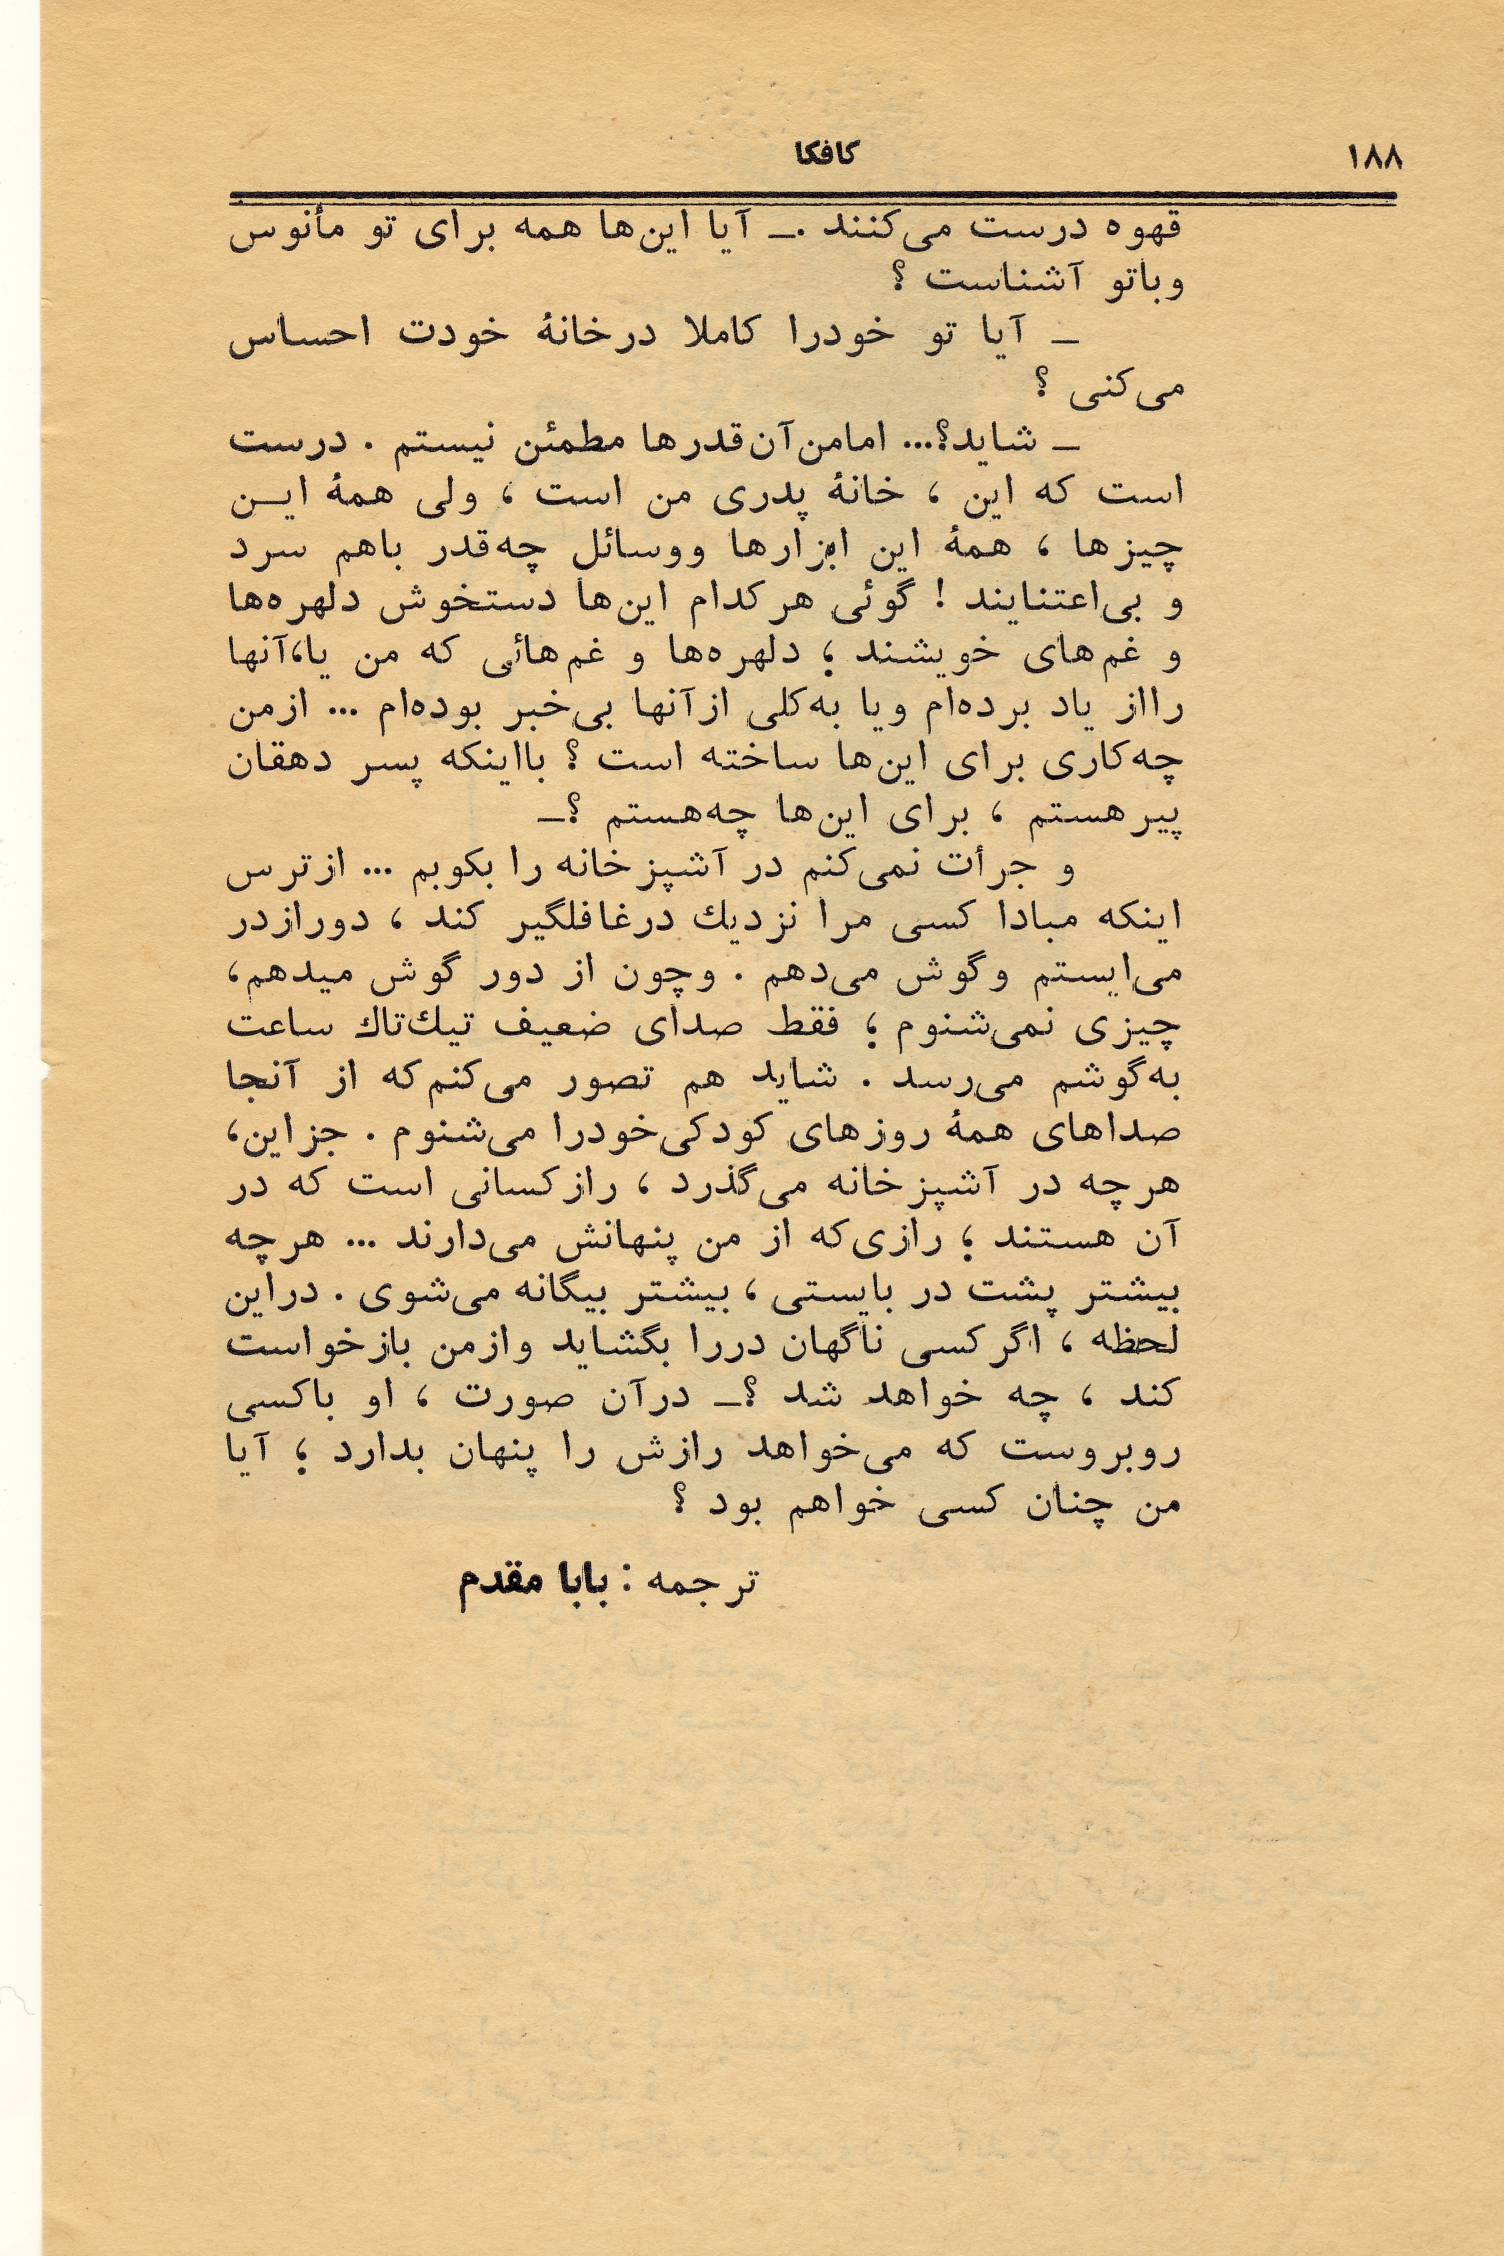 ۱۸۸
کافکا
قهوه درست می‌کنند .ـ آیا این‌ها همه برای تو مأنوس
وباتو آشناست ؟
ـ آیا تو خودرا کاملا درخانهٔ خودت احساس
می‌کنی ؟
ـ شاید؟... امامن‌آن‌قدرها مطمئن نیستم . درست
است که این ، خانهٔ پدری من است ، ولی همهٔ ایـن
چیزها ، همهٔ این ابزارها ووسائل چه‌قدر باهم سرد
و بی‌اعتنایند ! گوئی هرکدام این‌ها دستخوش دلهره‌ها
و غم‌های خویشند ؛ دلهره‌ها و غم‌هائی که من یا،آنها
رااز یاد برده‌ام ویا به‌کلی ازآنها بی‌خبر بوده‌ام ... ازمن
چه‌کاری برای این‌ها ساخته است ؟ بااینکه پسر دهقان
پیرهستم ، برای این‌ها چه‌هستم ؟ـ
و جرأت نمی‌کنم در آشپزخانه را بکوبم ... ازترس
اینکه مبادا کسی مرا نزدیك درغافلگیر کند ، دورازدر
می‌ایستم وگوش می‌دهم . وچون از دور گوش میدهم،
چیزی نمی‌شنوم ؛ فقط صدای ضعیف تیك‌تاك ساعت
به‌گوشم می‌رسد . شاید هم تصور می‌کنم‌که از آنجا
صداهای همهٔ روزهای کودکی‌خودرا می‌شنوم . جزاین،
هرچه در آشپزخانه می‌گذرد ، رازکسانی است که در
آن هستند ؛ رازی‌که از من پنهانش می‌دارند ... هرچه
بیشتر پشت در بایستی ، بیشتر بیگانه می‌شوی . دراین
لحظه ، اگرکسی ناگهان دررا بگشاید وازمن بازخواست
کند ، چه خواهد شد ؟ـ درآن صورت ، او باکسی
روبروست که می‌خواهد رازش را پنهان بدارد ؛ آیا
من چنان کسی خواهم بود ؟
ترجمه : بابا مقدم